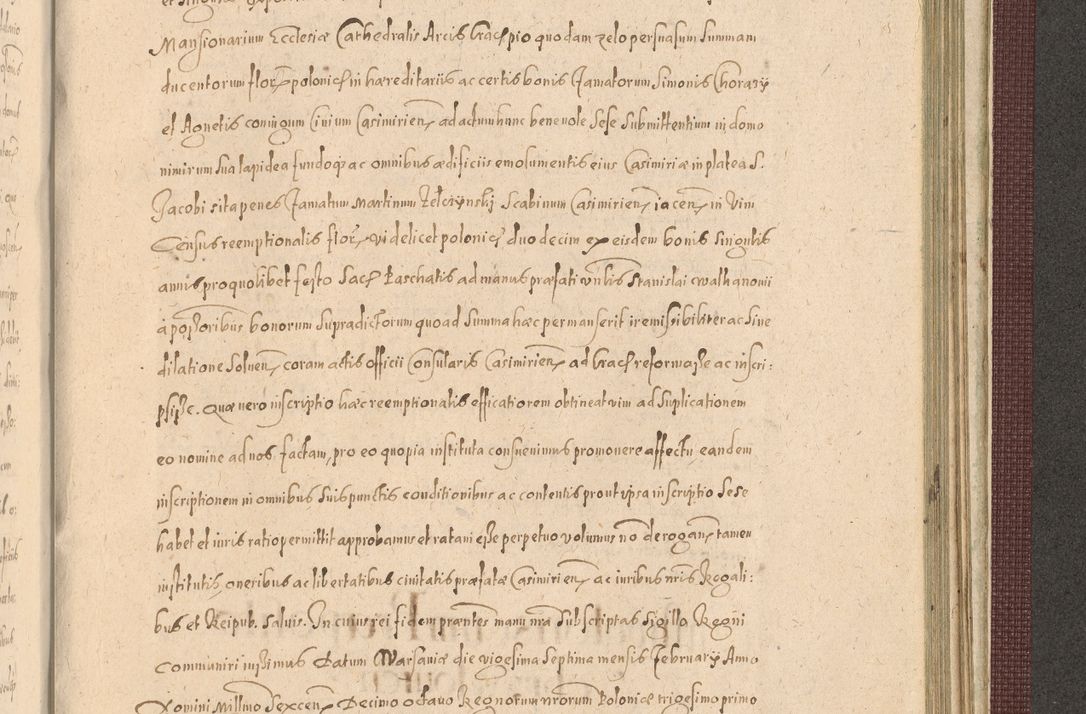 Mansionarium Ecclesiæ Cathedralis Arcis Crac̃ pio quodam zelo persuasum summam
ducentorum florẽ polonic̃ in hæreditariis ac certis bonis famatorum Simonis Chorąży
et Agnetis coniugum Civium Casimirieñ ad actum hunc benevole sese submittentium in domo
nimirum sua lapidea fundoq; ac omnibus ædificiis emolumentis eius Casimiriæ in platea S.
Jacobi sita penes famatum Martinum Zelczynskj Scabinum Casimirieñ iaceñ in vim
Census reemptionalis flor̃ videlicet polonic̃ duodecim ex eisdem bonis singulis
annis pro quolibet festo Sac̃ Paschatis ad manus præfati vñlis Stanislai Walkanovii
à possoribus bonorum supradictorum quoad summa hæc permanserit iremissibiliter ac sine
dilatione solueñ coram actis officii Consularis Casimirieñ ad Crac̃ reformasse ac inscri:
psisse. Quæ vero inscriptio hæc reemptionalis efficatiorem obtineat vim ad suplicationem
eo nomine ad nos factam, pro eo quo pia instituta consuevimus promovere affectu, eandem
inscriptionem in omnibus suis punctis conditionibus ac contentis prout ipsa inscriptio sese
habet et iuris ratio permittit approbamus et ratam esse perpetuo volumus nõ derogañ tamen
institutis, oneribus ac libertatibus civitatis præfatæ Casimirieñ ac iuribus nr̃is Regali:
bus et Reipub. salvis. In cuius rei fidem præntes manu nr̃a subscriptas sigillo Regni
communiri iussimus Datum Warsaviæ die vigesima septima mensis February Anno
Domini Millmo Sexceñ Decimo octavo Regnorum nr̃orum Poloniæ trigesimo primo